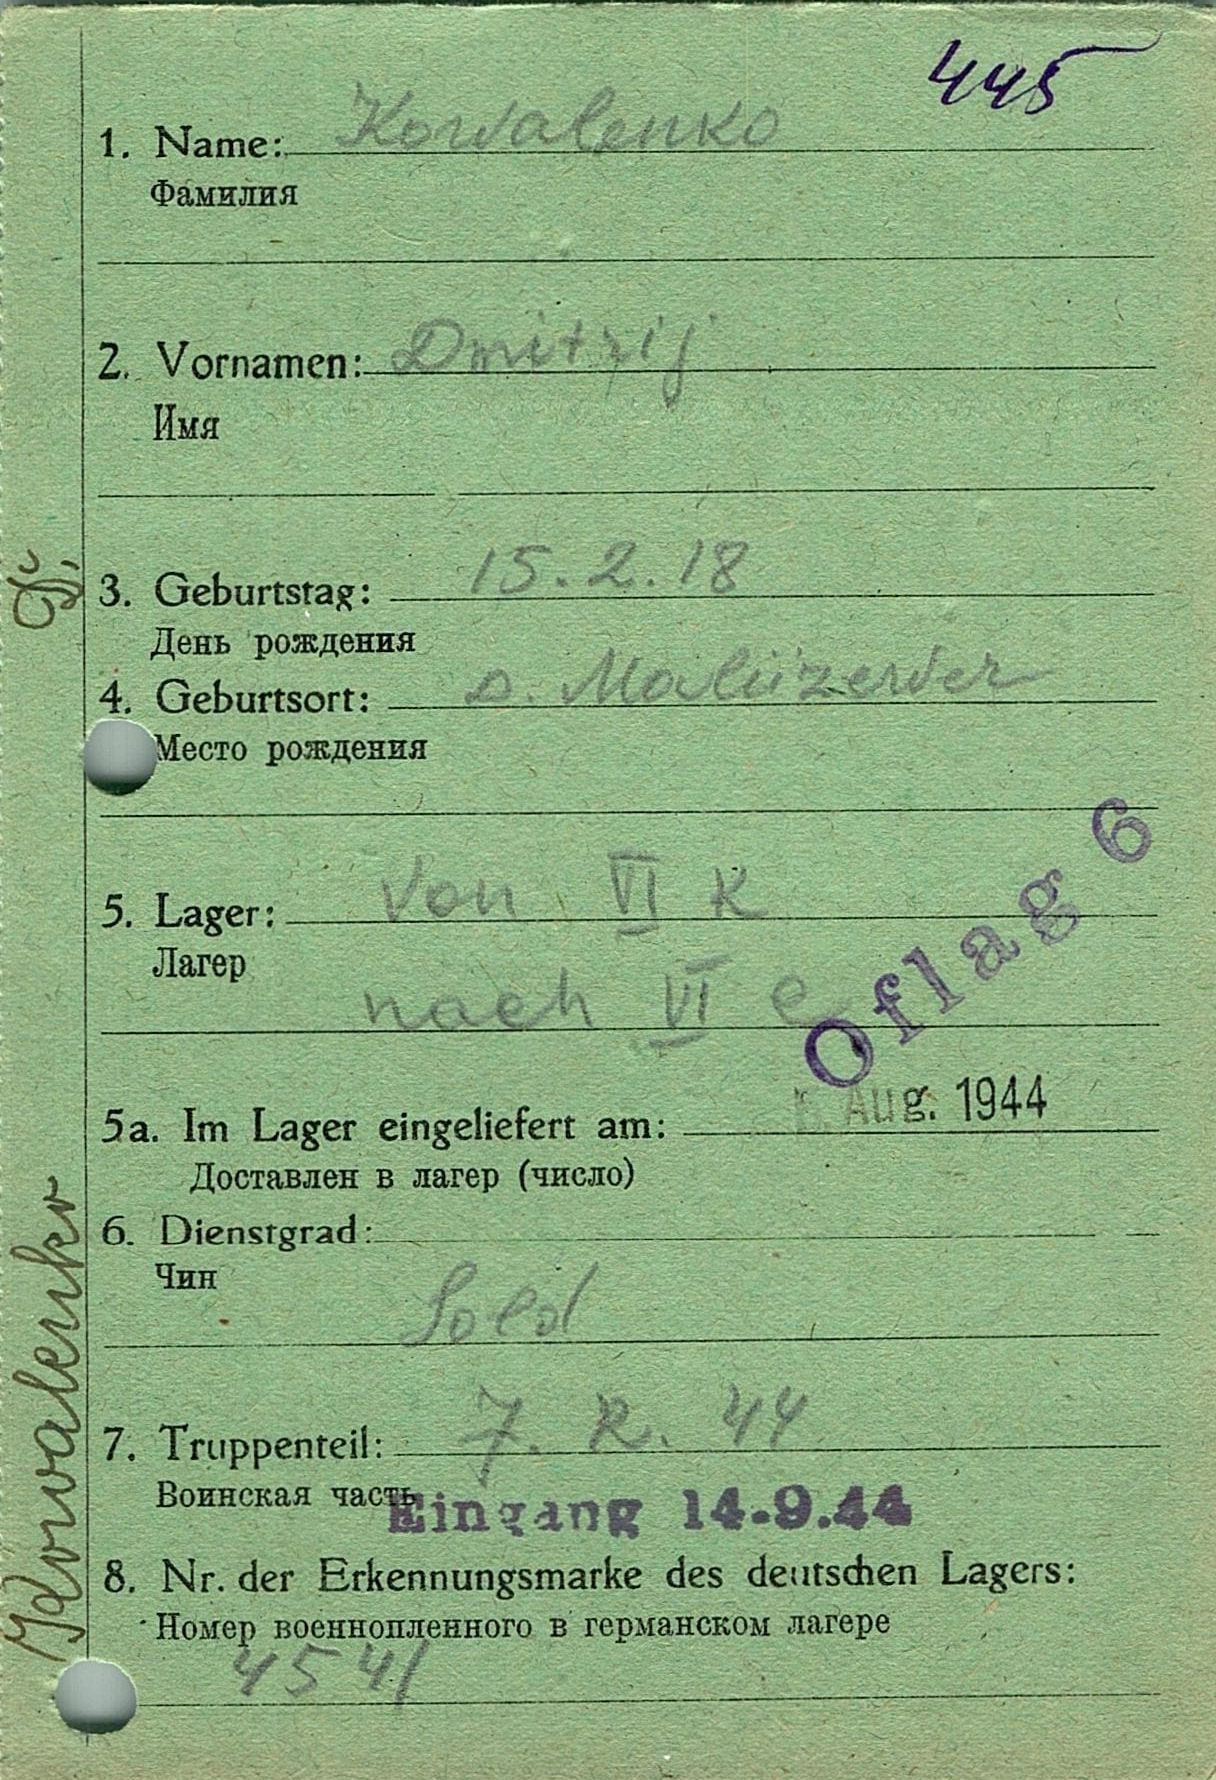 445
1. Name: Kowalenko
Фамилия
2. Vornamen: Dmitrij
Имя
3. Geburtstag: 15.2.18
День рождения
4. Geburtsort: D.
Место рождения
5. Lager: von VI K
Лагер
nach VI C
Oflag 6
5a. Im Lager eingeliefert am: Aug. 1944
Доставлен в лагер (число)
6. Dienstgrad:
Чин
Sold
7. Truppenteil: 7. R. 44
Воинская часть
Eingang 14.9.44
8. Nr. der Erkennungsmarke des deutschen Lagers:
Номер военнопленного в германском лагере
4541
Kowalenko